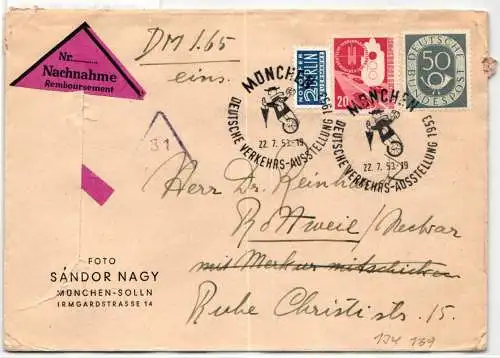 DM 1.65
eins.
Nr.
Nachnahme
Remboursement
NOTOPFER
2 BERLIN
STEUERMARKE
20
DEUTSCHE BUNDESPOST
50
MÜNCHEN
DEUTSCHE VERKEHRS-AUSSTELLUNG 1953
22. 7. 53. 19
MÜNCHEN
DEUTSCHE VERKEHRS-AUSSTELLUNG 1953
22. 7. 53. 19
31
Herr Dr. Reinhard
Rottweil / Neckar
mit Merkur mitschicken
Ruhe Christi str. 15.
FOTO
SÁNDOR NAGY
MÜNCHEN-SOLLN
IRMGARDSTRASSE 14
134 159